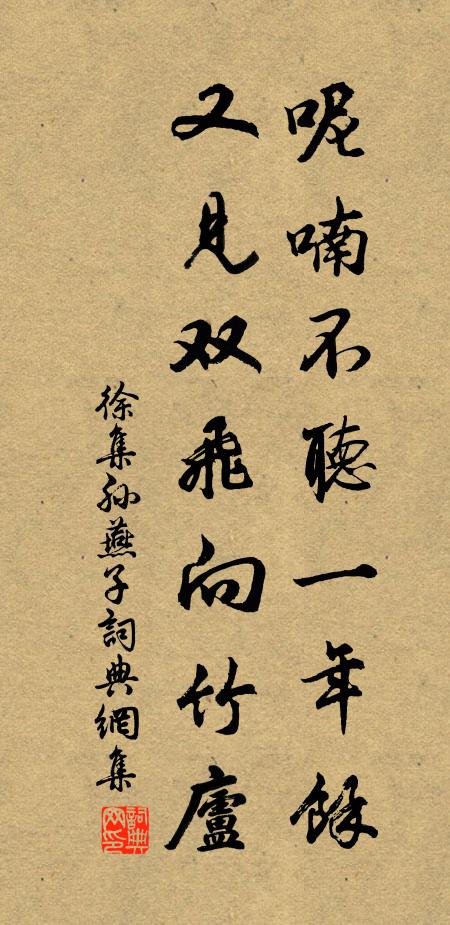 呢喃不聽一年餘
又見双飛向竹廬
徐集孙燕子詞典網集
詞典
网印